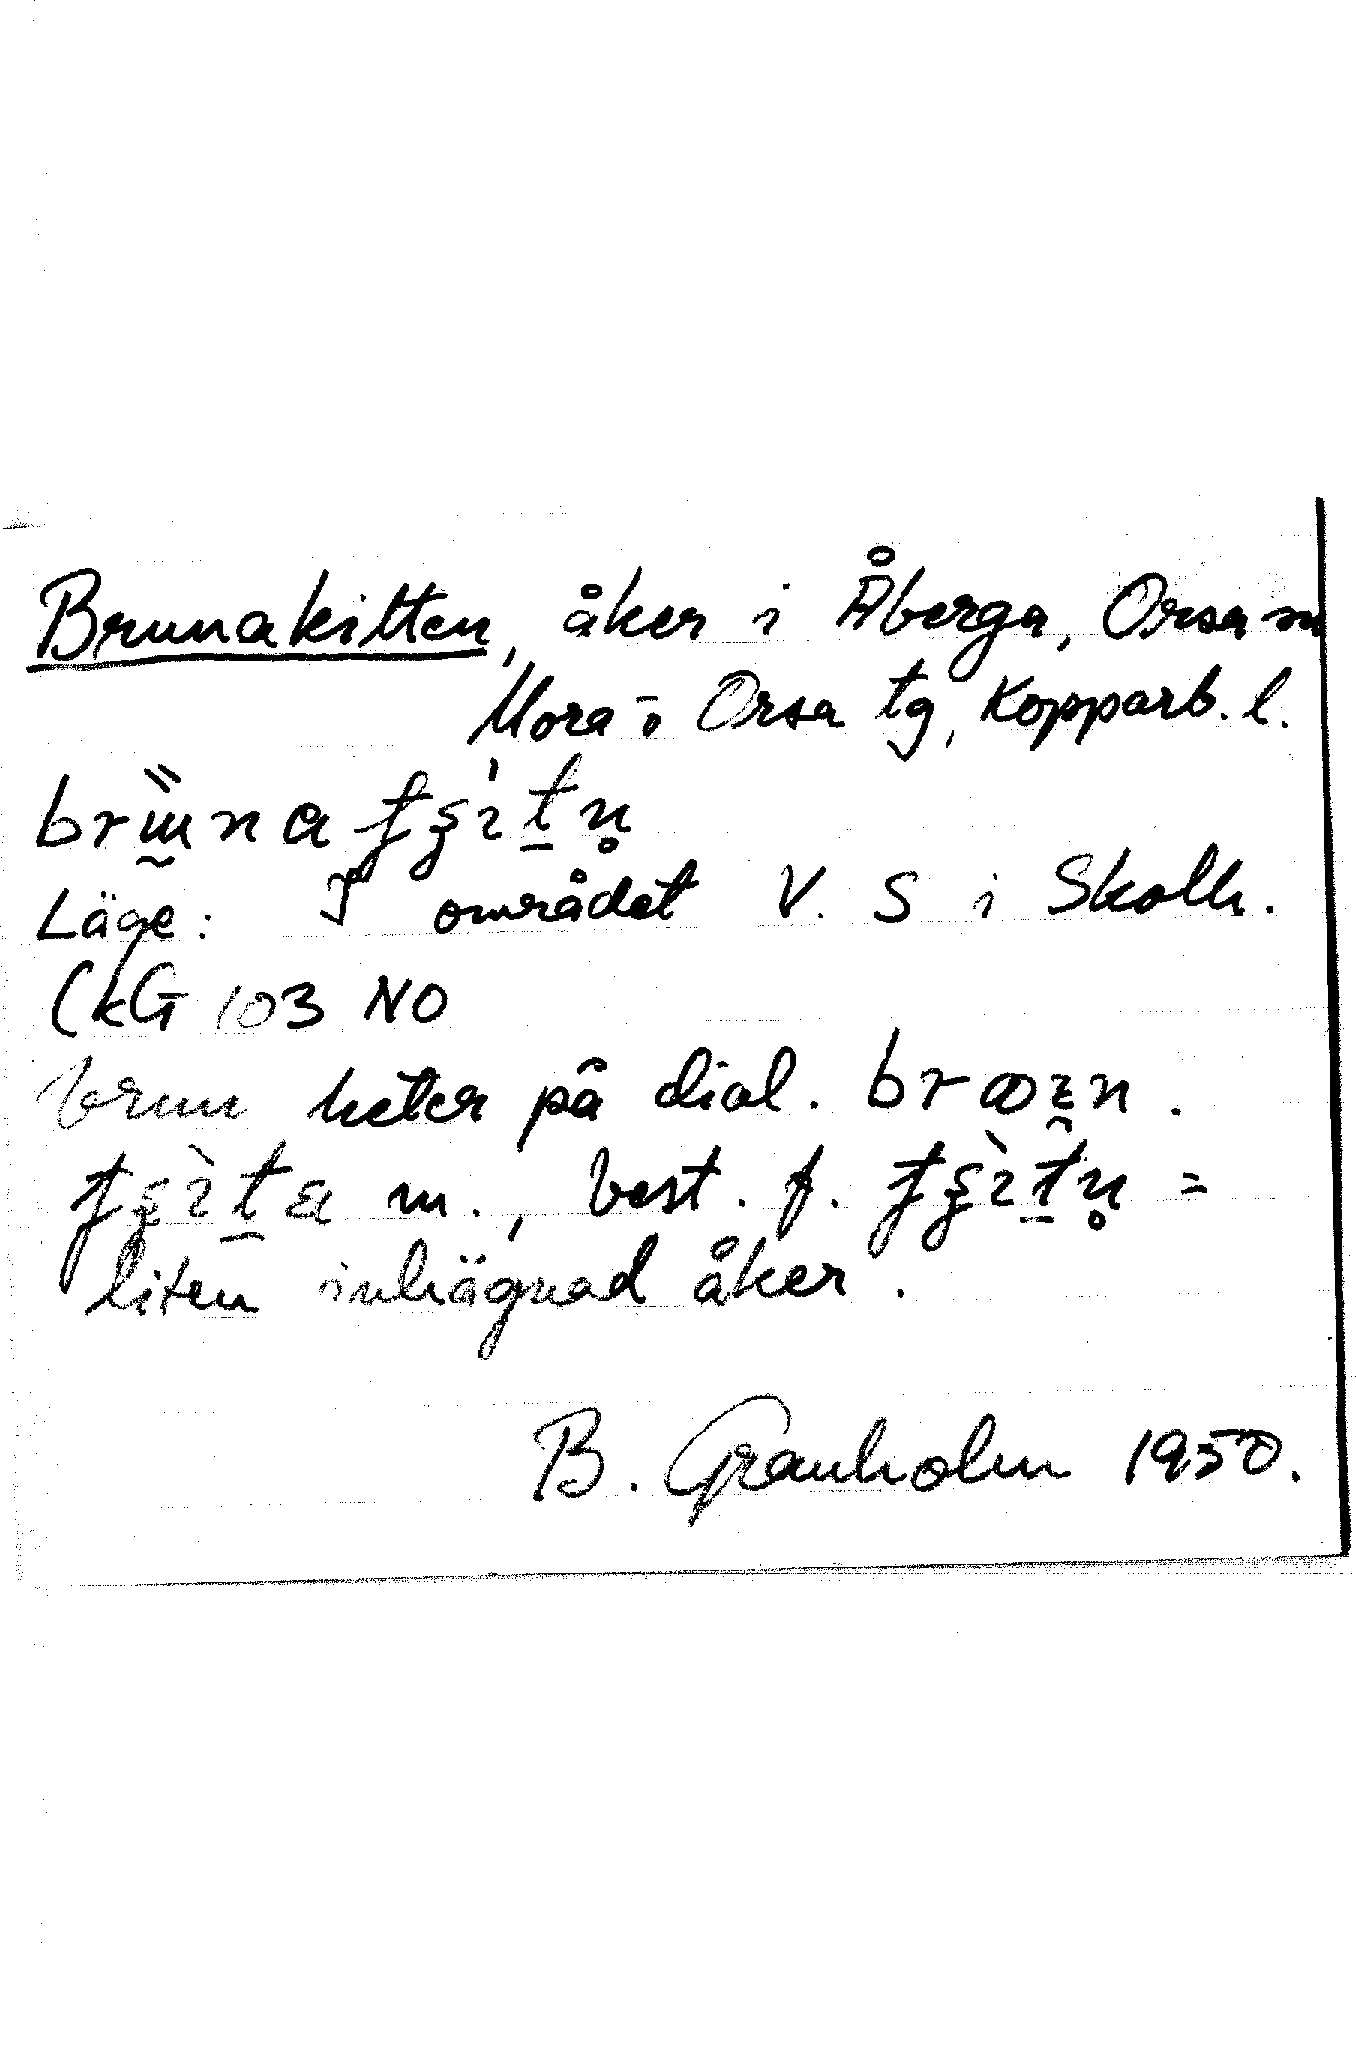 Brunakitten, åker i Åberga, Orsa sn
Mora o Orsa tg, Kopparb. l.
Läge: I området V. S i Skolh.
(kG 103 NO
brun heter på dial.
m., best. f. =
liten inhägnad åker.
B. Granholm 1950.